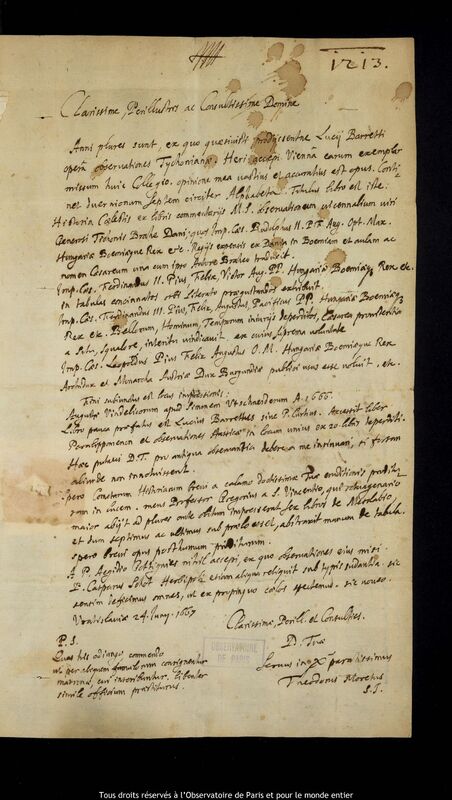 1213.
Clarissime, Perillustris ac Consultissime Domine
Anni plures sunt, ex quo quæsivisti prodijssentne Lucij Barretti
operâ observationes Tychonianæ. Heri accepi Viennâ earum exemplar
missum huic Collegio. opinione meâ vastius et accuratius est opus. Conti-
net duernionum septem circiter Alphabeta. Titulus libro est iste:
Historia Cœlestis ex libris commentarijs M.S. observationum vicennalium viri
Generosi Tichonis Brahe Dani; quos Imp. Cæs. Rudolphus II. P.F. Aug. Opt. Max.
Hungariæ Boemiæque Rex etc. Regijs expensis ex Daniâ in Boemiam et aulam ac
nomen Cæsareum unâ cum ipso Autore Braheo traduxit.
Imp. Cæs. Ferdinandus II. Pius, Felix, Victor Aug. PP. Hungariæ Boemiæq Rex etc.
in tabulas concinnatos orbi Literato prægustandos exhibuit.
Imp. Cæs. Ferdinandus III. Pius, Felix, Augustus, Pacificus PP. Hungariæ Boemiæq
Rex etc. Bellorum, Hominum, Temporum iniurijs deperditos, Cæsarea providentia
a situ, squalore, interitu vindicavit. ex cuius suprema voluntate
Imp. Cæs. Leopoldus Pius Felix Augustus O.M. Hungariæ Boemiæque Rex
Archidux et Monarcha Austriæ Dux Burgundiæ publici usus esse voluit. etc.
Fini subiungendus est locus impressionis.
Augustæ Vindelicorum apud Simonem Utzschneiderum A. 1666.
Libro pauca præfatus est Lucius Barrettus sive P. Curtius. Accessit liber
Paralipomenon et observationes Hassiacæ in locum unius ex 20 libris deperditi.
Hæc putavi D.T. pro antiqua observantia debere a me insinuari, si forsan
aliunde non innotuissent.
Spero Cometarum Historiarum brevi a calamo doctissimæ Tuæ eruditionis prodituram
in lucem. meus Professor Gregorius a S. Vincentio, qui octuagenario
maior abijt ad plures ante obitum impresserat sex libros de Mesolabio,
et dum septimus ac ultimus sub prælo esset, abstraxit manum de tabula.
spero brevi opus posthumum proditurum.
A P. Ægidio Gottignies nihil accepi, ex quo observationes eius misi.
P. Casparus Schot Herbipoli etiam aliqua reliquit sub typis sudantia. sic
sensim deficimus omnes, ut ex propinquo cœlos spectemus. sic voveo.
Vratislaviæ 24. Juny. 1667
Clarissimæ, Perill. et Consultiss.
D. Tuæ
Servus in Xto paratissimus
Theodorus Moretus
S.J.
P.S.
Quas his adiungo commendo
ut per aliquem consignentur
matronæ, cui inscribuntur. libenter
simile officium præstiturus.
OBSERVATOIRE
DE PARIS
Tous droits réservés à l'Observatoire de Paris et pour le monde entier